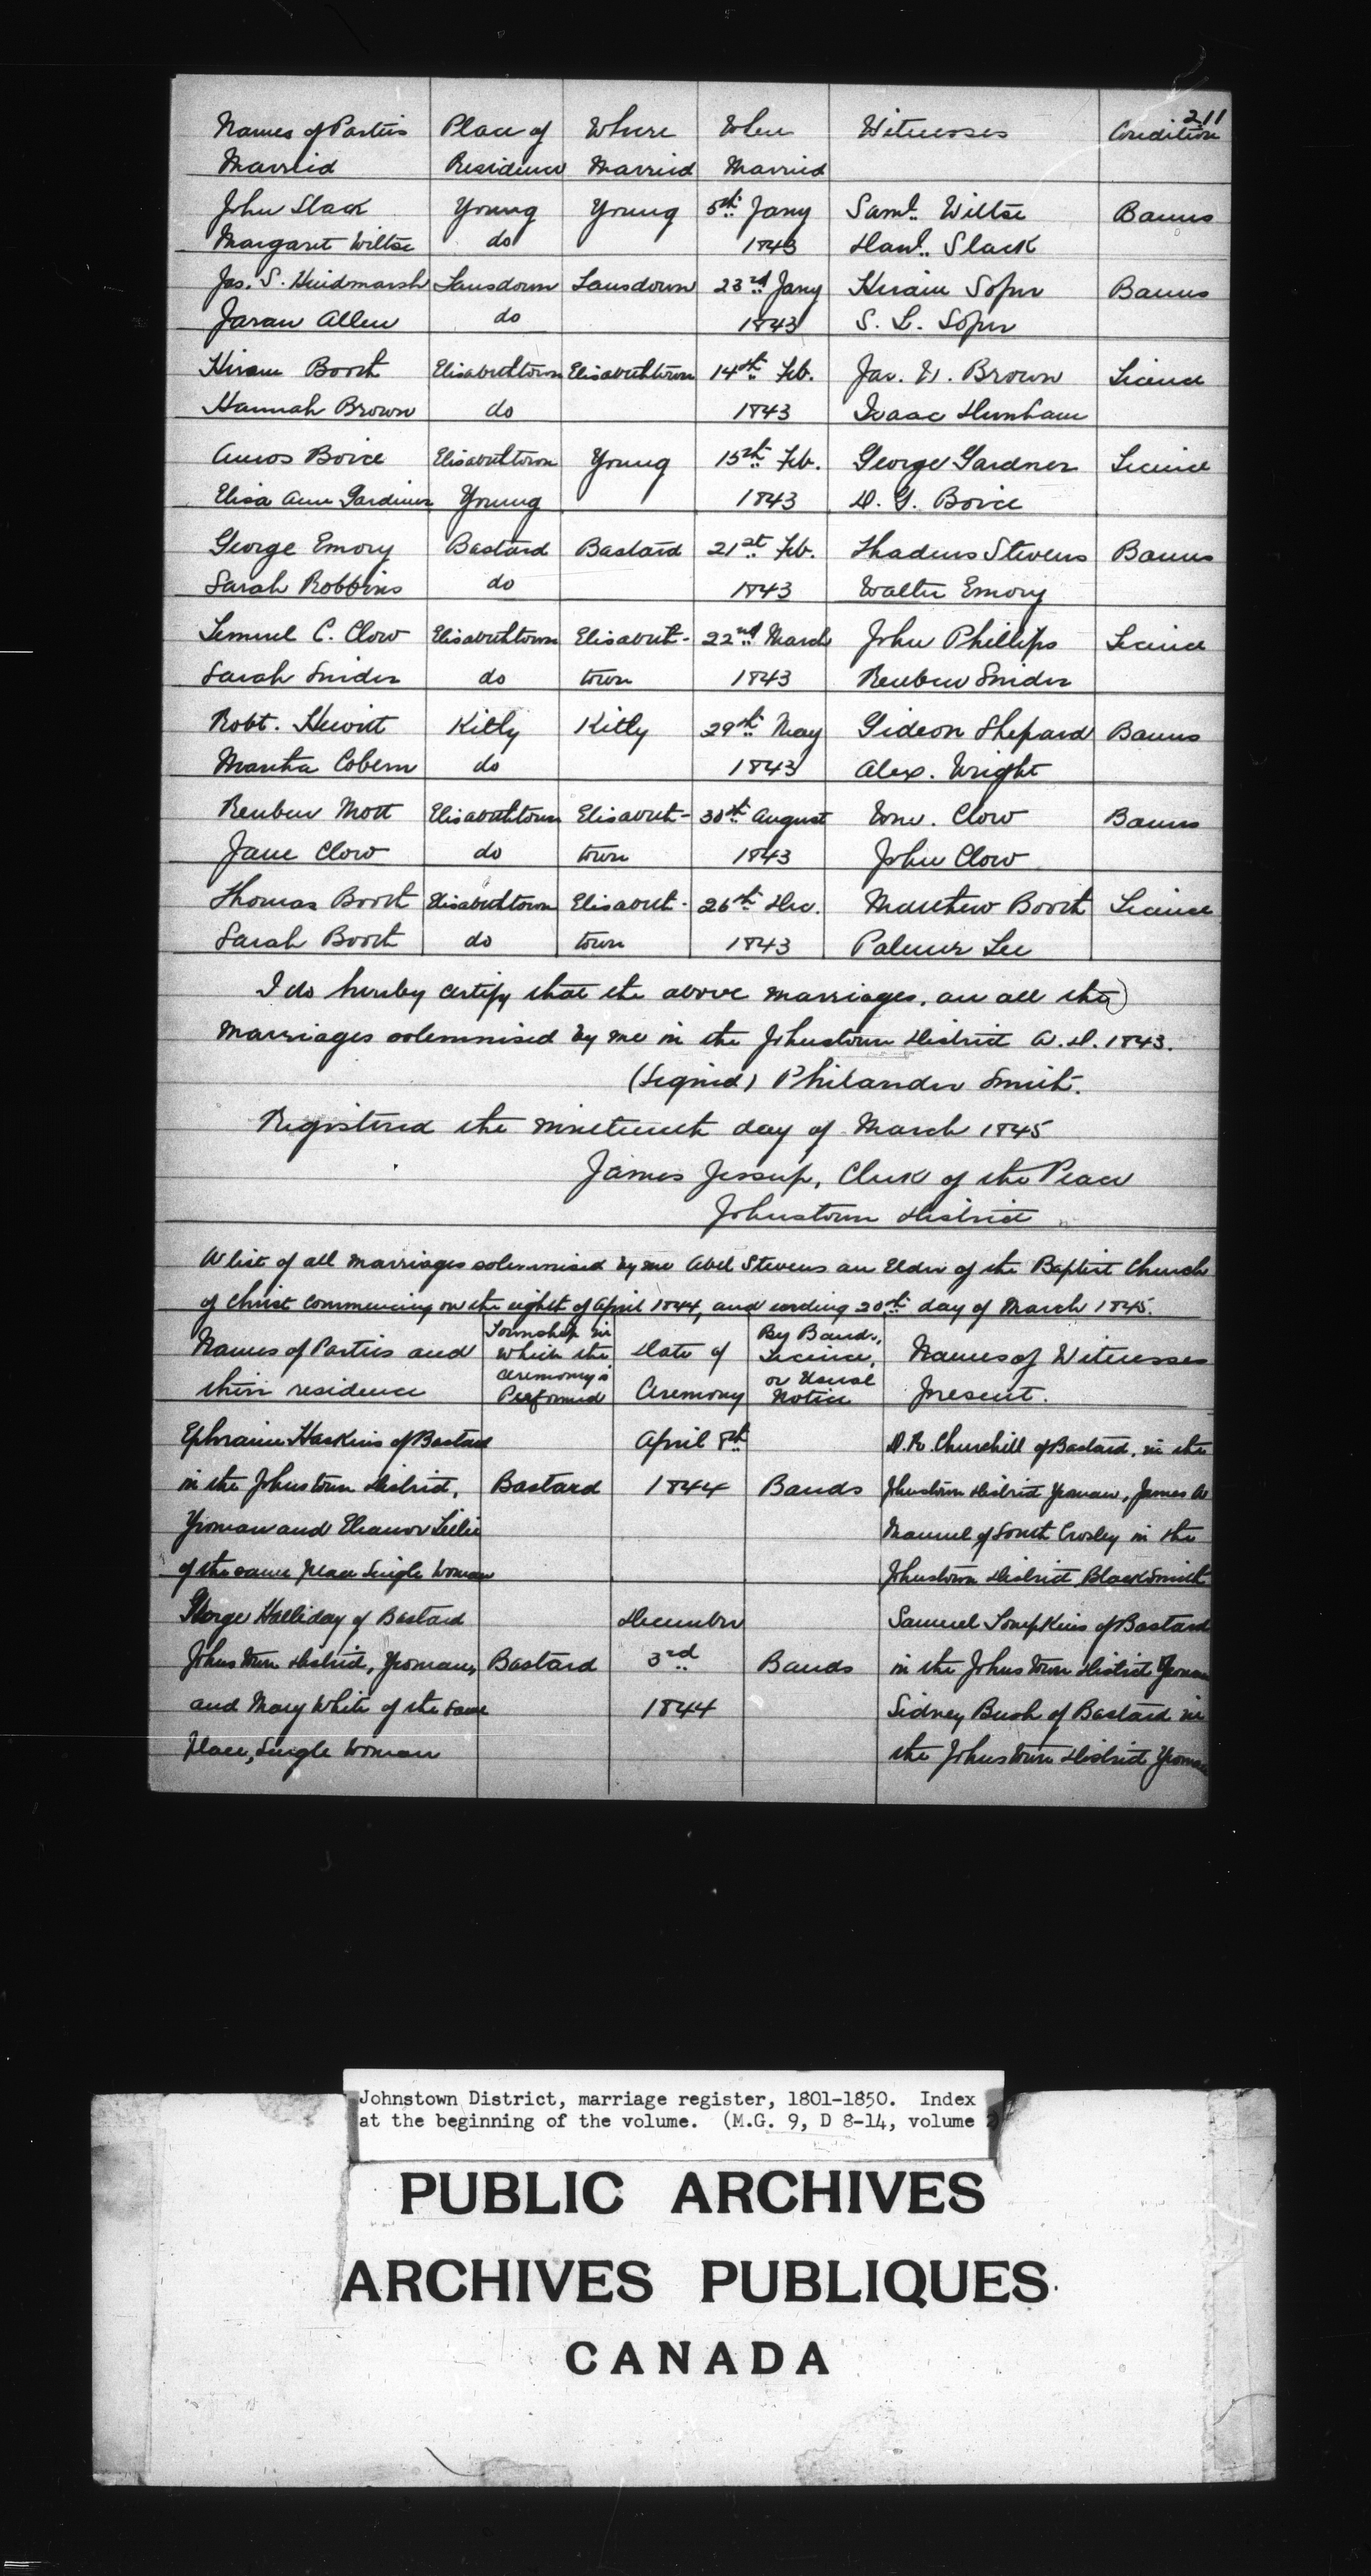 211
Names of Parties Place of Where When Witnesses Condition
Married Residence Married Married
John Slack Young Young 5th Jany Saml. Wiltse Banns
Margaret Wiltse do 1843 Danl. Slack
Jas. S. Hindmarsh Lansdown Lansdown 23rd Jany Hiram Soper Banns
Allen do 1843 S. L. Soper
Hiram Booth Elisabethtown Elisabethtown 14th Feb. Jas. Brown Licence
Hannah Brown do 1843 Isaac Dunham
Amos Boice Elisabethtown Young 15th Feb. George Gardner Licence
Elisa Ann Gardiner Young 1843 D. G. Boice
George Emory Bastard Bastard 21st Feb. Thadeus Stevens Banns
Sarah Robbins do 1843 Walter Emory
Lemuel C. Clow Elisabethtown Elisabeth- 22nd March John Phillips Licence
Sarah Snider do town 1843 Reuben Snider
Robt. Hewitt Kitly Kitly 29th May Gideon Shepard Banns
Martha Cobern do 1843 Alex. Wright
Reuben Mott Elisabethtown Elisabeth- 30th August Wm. Clow Banns
Jane Clow do town 1843 John Clow
Thomas Booth Elisabethtown Elisabeth- 26th Dec. Matthew Booth Licence
Sarah Booth do town 1843 Palmer Lee
I do hereby certify that the above marriages, are all the
marriages solemnised by me in the Johnstown District A. D. 1843.
(Signed) Philander Smith.
Registered the nineteenth day of March 1845
James Jessup, Clerk of the Peace
Johnstown District
A list of all marriages solemnised by me Abel Stevens an Elder of the Baptist Church
of Christ commencing on the eight of April 1844, and ending 20th day of March 1845.
Names of Parties and their residence
Township in which the ceremony is Performed
Date of Ceremony
By Bands, Licence, or Usual Notice
Names of Witnesses present.
Ephraim Haskins of Bastard April 8th D. R. Churchill of Bastard, in the
in the Johnstown District, Bastard 1844 Bands Johnstown District Yeoman, James A
Yeoman and Eleanor Leslie of South Crosby in the
of the same place Single Woman Johnstown District Blacksmith
George Halliday of Bastard December Samuel Tompkins of Bastard
Johnstown District, Yeoman, Bastard 3rd Bands in the Johnstown District Yeoman
and Mary White of the same 1844 Sidney Bush of Bastard in
place, Single Woman the Johnstown District Yeoman
Johnstown District, marriage register, 1801-1850. Index
at the beginning of the volume. (M.G. 9, D 8-14, volume 2)
PUBLIC ARCHIVES
ARCHIVES PUBLIQUES
CANADA